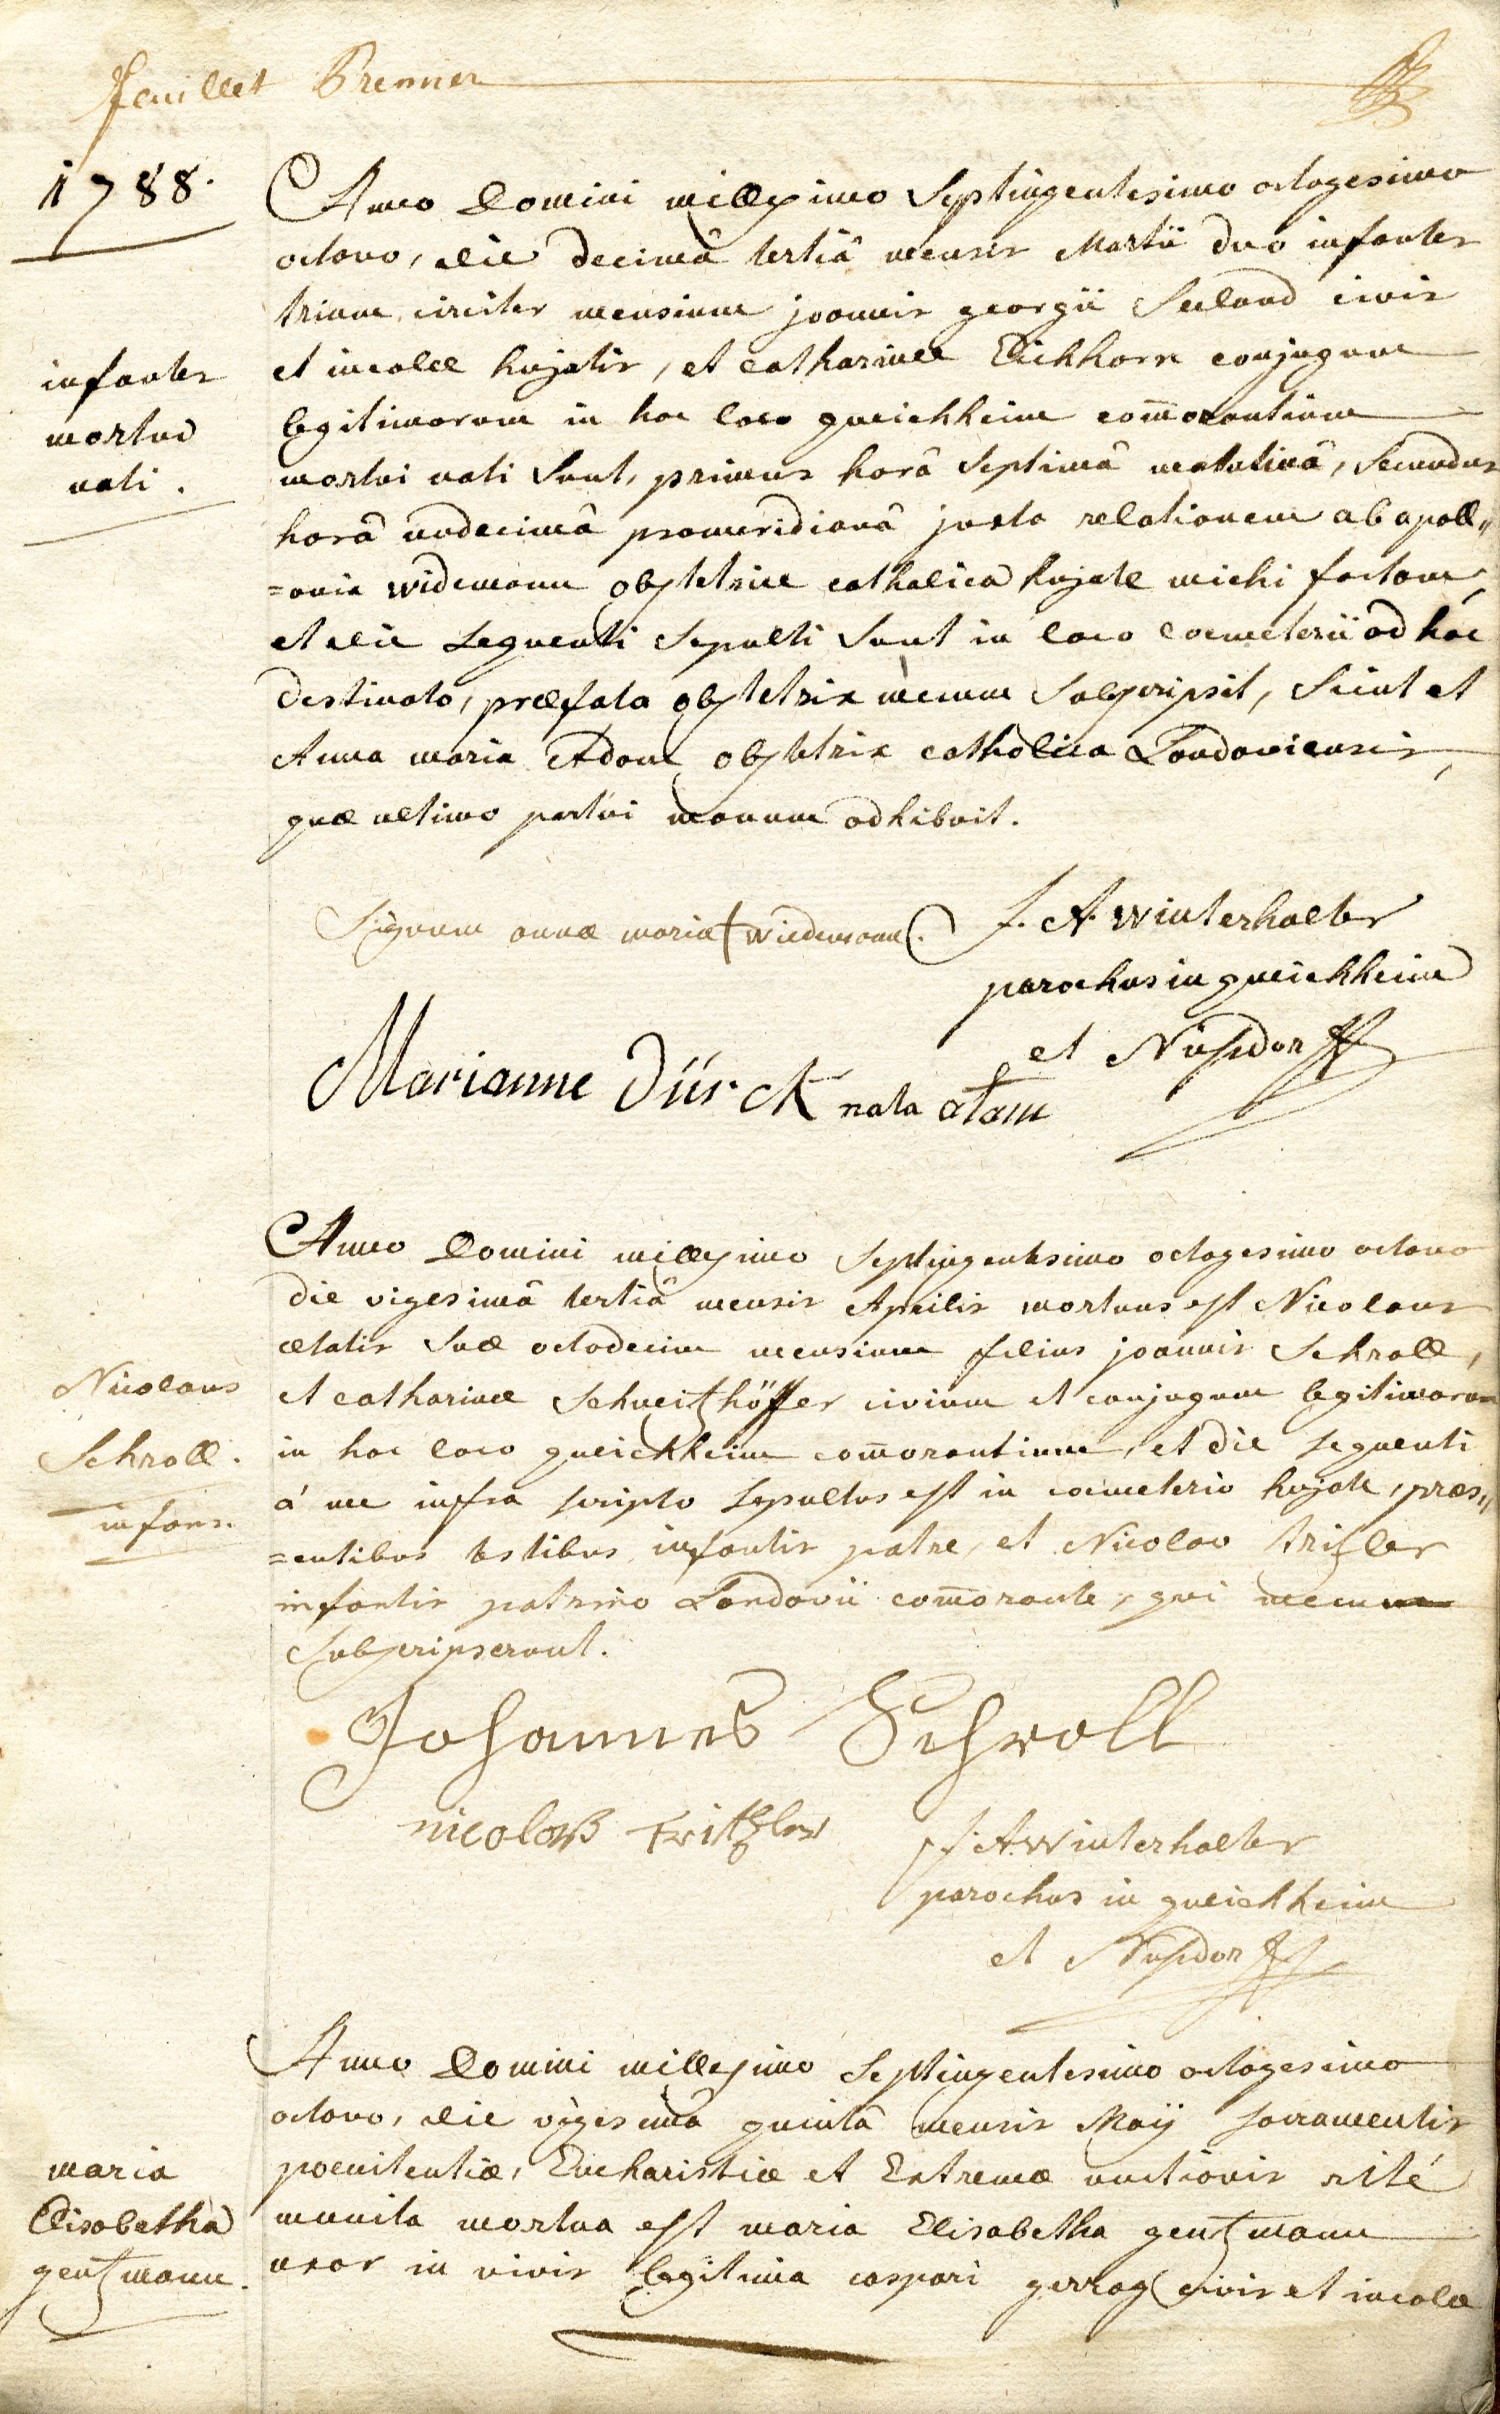 feuillet Premier
1788.
Anno Domini millesimo Septingentesimo octogesimo
octavo, die decimâ tertiâ mensis Martii duo infantes
trium circiter mensium joannis georgii Seeland civis
infantes
mortui
nati.
et incolæ hujatis, et catharinæ Eichhorn conjugum
legitimorum in hoc loco queichheim com̄orantium
mortui nati sunt, primus horâ septimâ matutinâ, secundus
horâ undecimâ promeridianâ juxta relationem ab apoll=
=onia widemann obstetrice catholica hujate michi factam,
et die sequenti sepulti sunt in loco coemeterii ad hoc
destinato, præfata obstetrix mecum subscripsit, sicut et
Anna maria Adam obstetrix catholica Landaviensis,
quæ ultimo partui manum adhibuit.
Signum annæ mariæ + wiedemann.
J. A. Winterhalter
parochus in queichheim
et Nusdorff
Marianne Dürck nata atam
Anno Domini millesimo septingentesimo octogesimo octavo
die vigesimâ tertiâ mensis Aprilis mortuus est Nicolaus
ætatis suæ octodecim mensium filius joannis Schroll,
Nicolaus
Schroll.
infans.
et catharinæ Schweitzhöffer civium et conjugum legitimorum
in hoc loco queichheim com̄orantium, et die sequenti
á me infra scripto sepultus est in coemeterio hujate, præs=
=entibus testibus infantis patre, et Nicolao tritzler
infantis patrino Landavii com̄orante, qui mecum
subscripserunt.
Johannes Schroll
nicolaß Fritzler
J. A. Winterhalter
parochus in queichheim
et Nusdorff
Anno Domini millesimo septingentesimo octogesimo
octavo, die vigesimâ quintâ mensis Maÿ sacramentis
maria
Elisabetha
gentzmann.
poenitentiæ, Eucharistiæ et Extremæ unctionis rité
munita mortua est maria Elisabetha gentzmann
uxor in vivis legitima caspari gerrag civis et incolæ